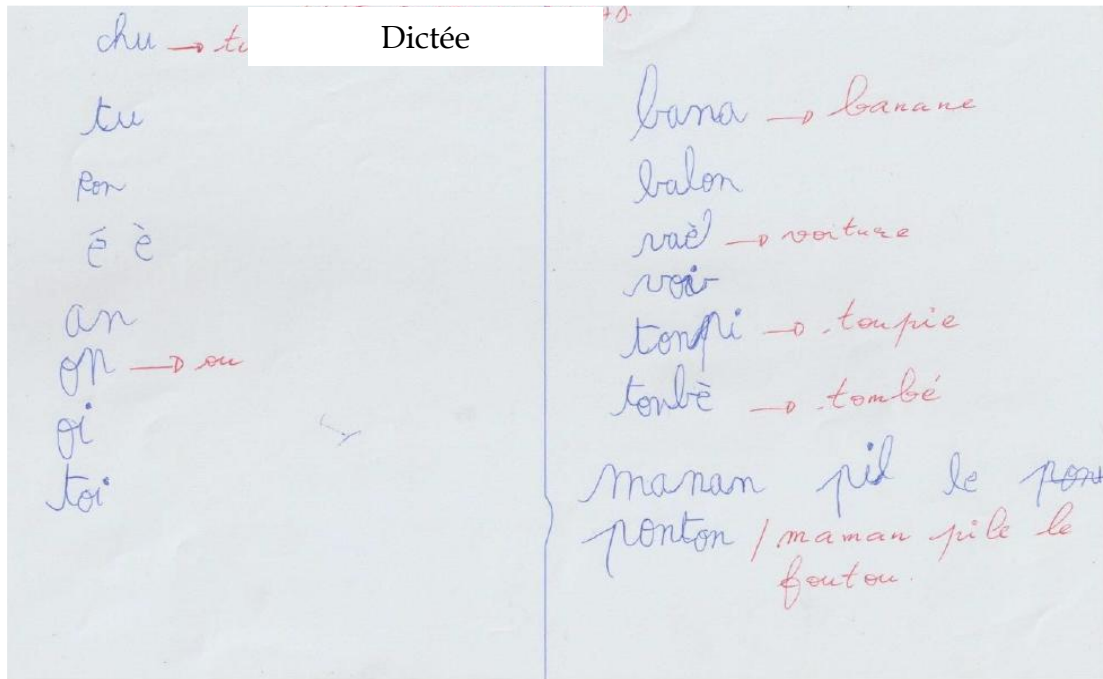 Dictée
chu → tu
tu
ron
é è
an
on → ou
oi
toi
bana → banane
balon
vaè → voiture
voir
tonpi → toupie
tonbè → tombé
manan pil le pont
ponton / maman pile le
foutou.